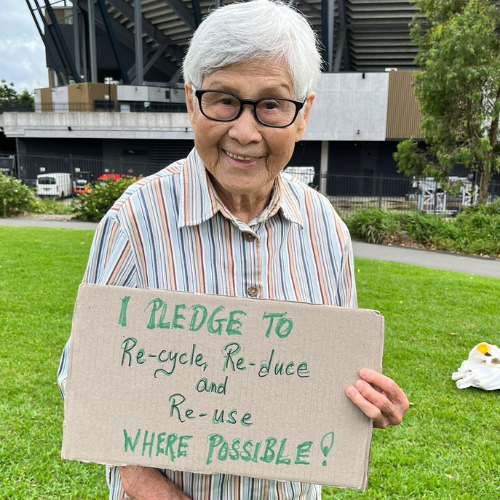 I PLEDGE TO
Re-cycle, Re-duce
and
Re-use
WHERE POSSIBLE!